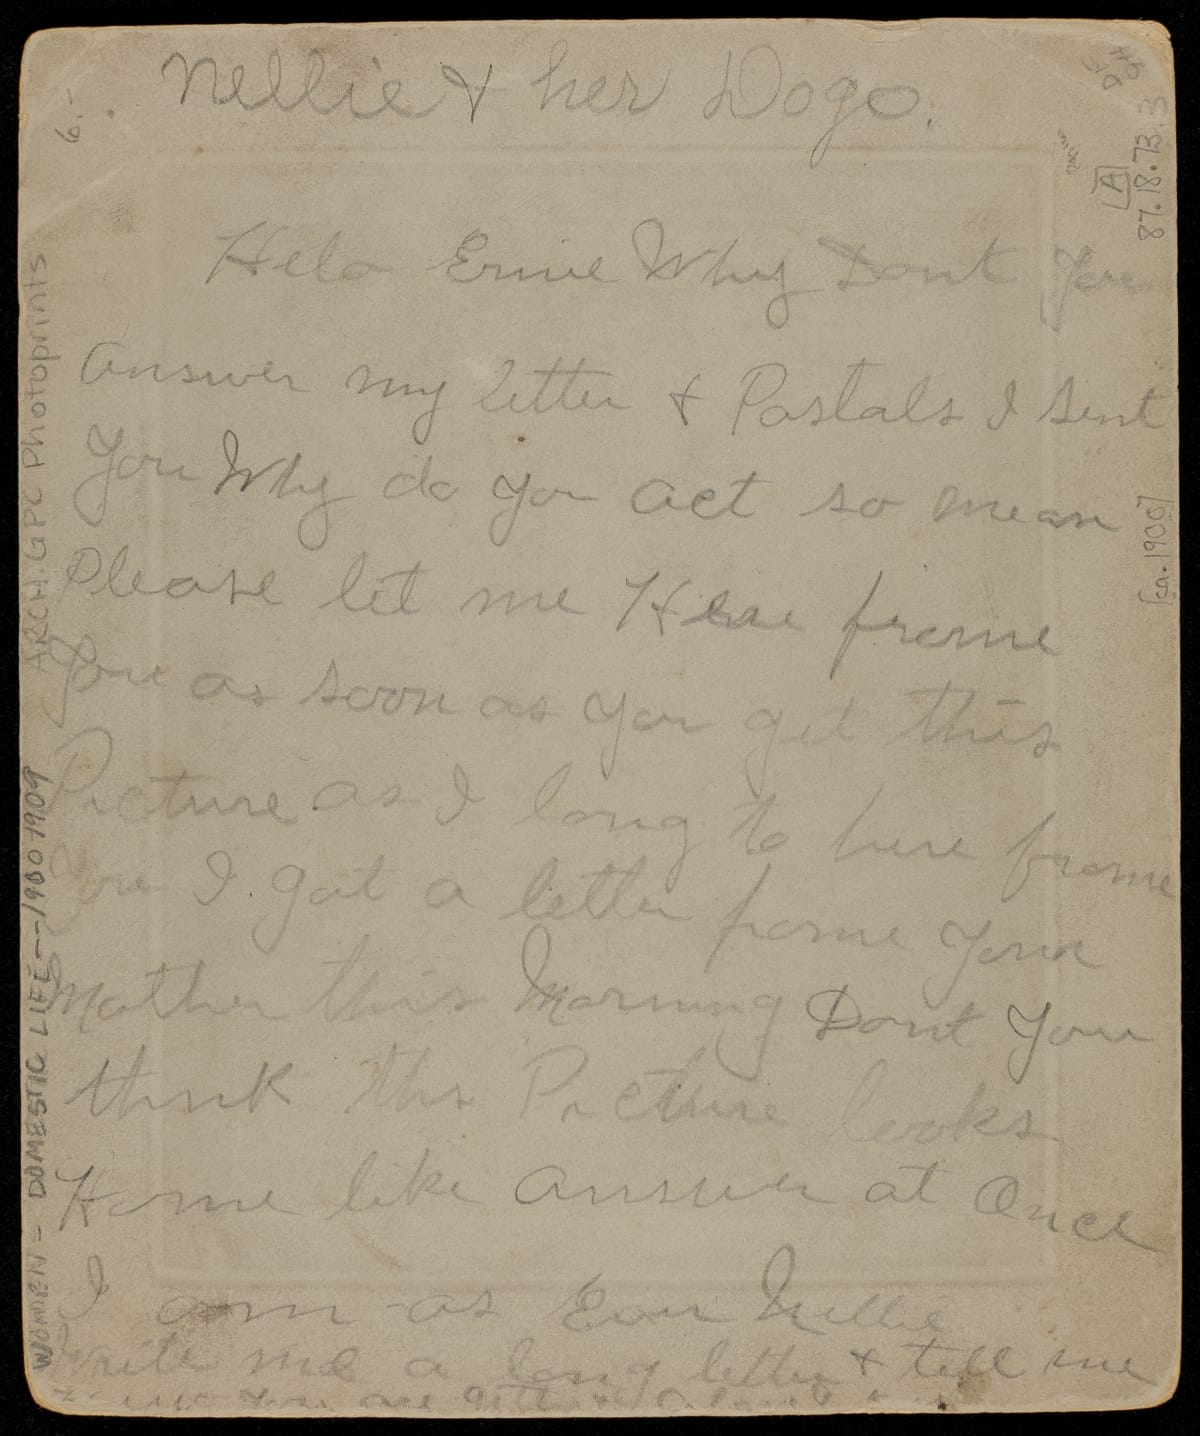 Nellie & her Dogo.
Helo Ernie Why Dont You
answer my letter & Postals I sent
You Why do you act so mean
Please let me Heae frome
You as soon as you get this
Picture as I long to here frome
You I got a letter frome your
Mother this Morning Dont You
think this Picture looks
Home like answer at Once
I am as Ever Nellie
write me a long letter & tell me
how you are getting
6.-
ARCH. GPC Photoprints
WOMEN = DOMESTIC LIFE--1900-1909
[A]
87.18.73.3
[ca. 1900]